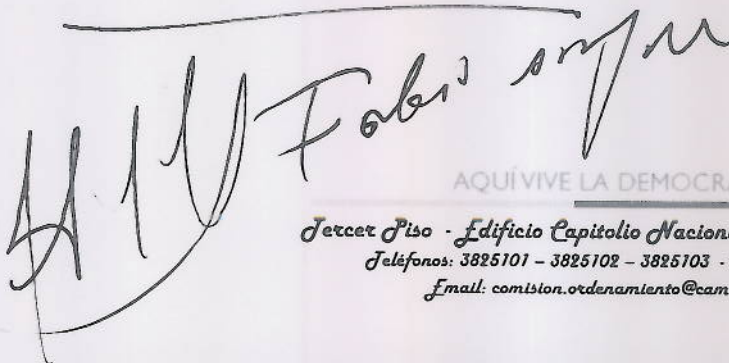 Fabio
AQUÍ VIVE LA DEMOCRA
Tercer Piso - Edificio Capitolio Nacion
Teléfonos: 3825101 – 3825102 – 3825103 -
Email: comision.ordenamiento@cam